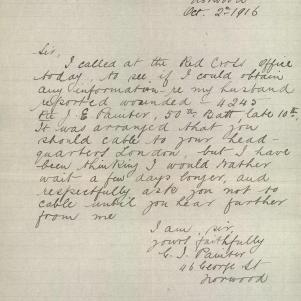 Norwood
Oct. 2nd 1916
Sir,
I called at the Red Cross Office
today, to see if I could obtain
any information re my husband
reported wounded - 4245
Pte J E Painter, 50th Batt, late 10th,
It was arranged that you
should cable to your head-
quarters London, but I have
been thinking I would rather
wait a few days longer, and
respectfully ask you not to
cable until you hear further
from me
I am, sir,
yours faithfully
C. J. Painter
46 George St
Norwood